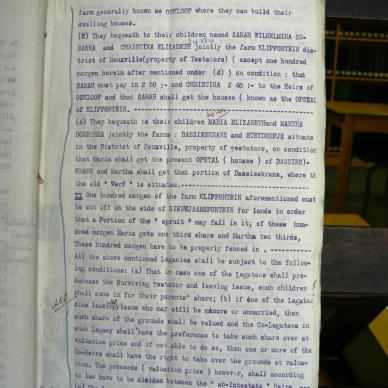 farm generally known as OSKLOOF where they can build their
dwelling houses.
(c) They bequeath to their children named SARAH WILHELMINA SU-
SANNA and CHRISTINA ELIZABETH jointly the farm KLIPFONTEIN dis-
trict of Rouxville(property of Testators) ( except one hundred
morgen herein after mentioned under (d) ) on condition : that
SARAH must pay in £ 60 ;- and CHRISTINA £ 40 :- to the Heirs of
OSKLOOF and that SARAH shall get the houses ( known as the OPSTAL
of KLIPFONTEIN.
(d) They bequeath to their children MARIA ELIZABETHand MARTHA
DORETHEA jointly the farms : DASSIESKRANS and STRYDHOPJE situate
in the District of Rouxville, property of testators, on condition
that Maria shall get the present OPSTAL ( houses ) of DASSIES)-
KRANS and Martha shall get that portion of Dassieskrans, where th
the old " Werf " is situated.
One hundred morgen of the farm KLIPFONTEIN aforementioned must
be cut off on the side of NIEUWJAARSFONTEIN for lands in order
that a Portion of the " spruit " may fall in it; of these hun-
dred morgen Maria gets one third share and Martha two thirds,
These hundred morgen have to be properly fenced in .
All the above mentioned Legacies shall be subject to the follow-
ing conditions: (a) That in case one of the Legatees shall pre-
decease the Surviving Testator and leaving issue, such children
shall come in for their parents' share; (b) if one of the Legatee
dies leaving issue who may still be minors or unmarried, then
such share of the grounds shall be valued and the Co-Legatees in
such Legacy shall have the preference to take such share over at
valuation price and if not able to do so, then one or more of the
Co-Heirs shall have the right to take over the grounds at valua-
tion. The proceeds ( valuation price ) however, shall according
to law have to be divided between the " ab-Intestato " Heirs